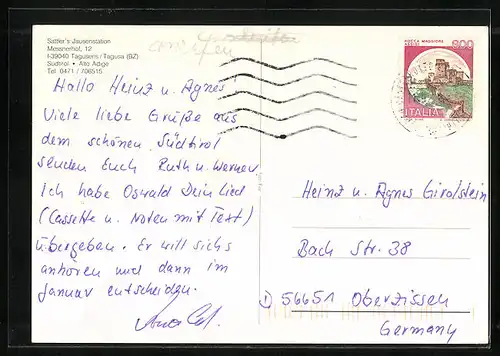 Sattler's Jausenstation
Messnerhof, 12
I-39040 Tagusens / Tagusa (BZ)
Südtirol • Alto Adige
Tel 0471 / 706515
ROCCA MAGGIORE
800
ITALIA
Hallo Heinz u. Agnes
Viele liebe Grüße aus
dem schönen Südtirol
senden Euch Ruth u. Werner
Ich habe Oswald Dein Lied
(Cassette u. Noten mit Text)
übergeben. Er will sichs
anhören und dann im
Januar entscheiden.
Heinz u. Agnes Girolstein
Bach Str. 38
D 56651 Oberzissen
Germany